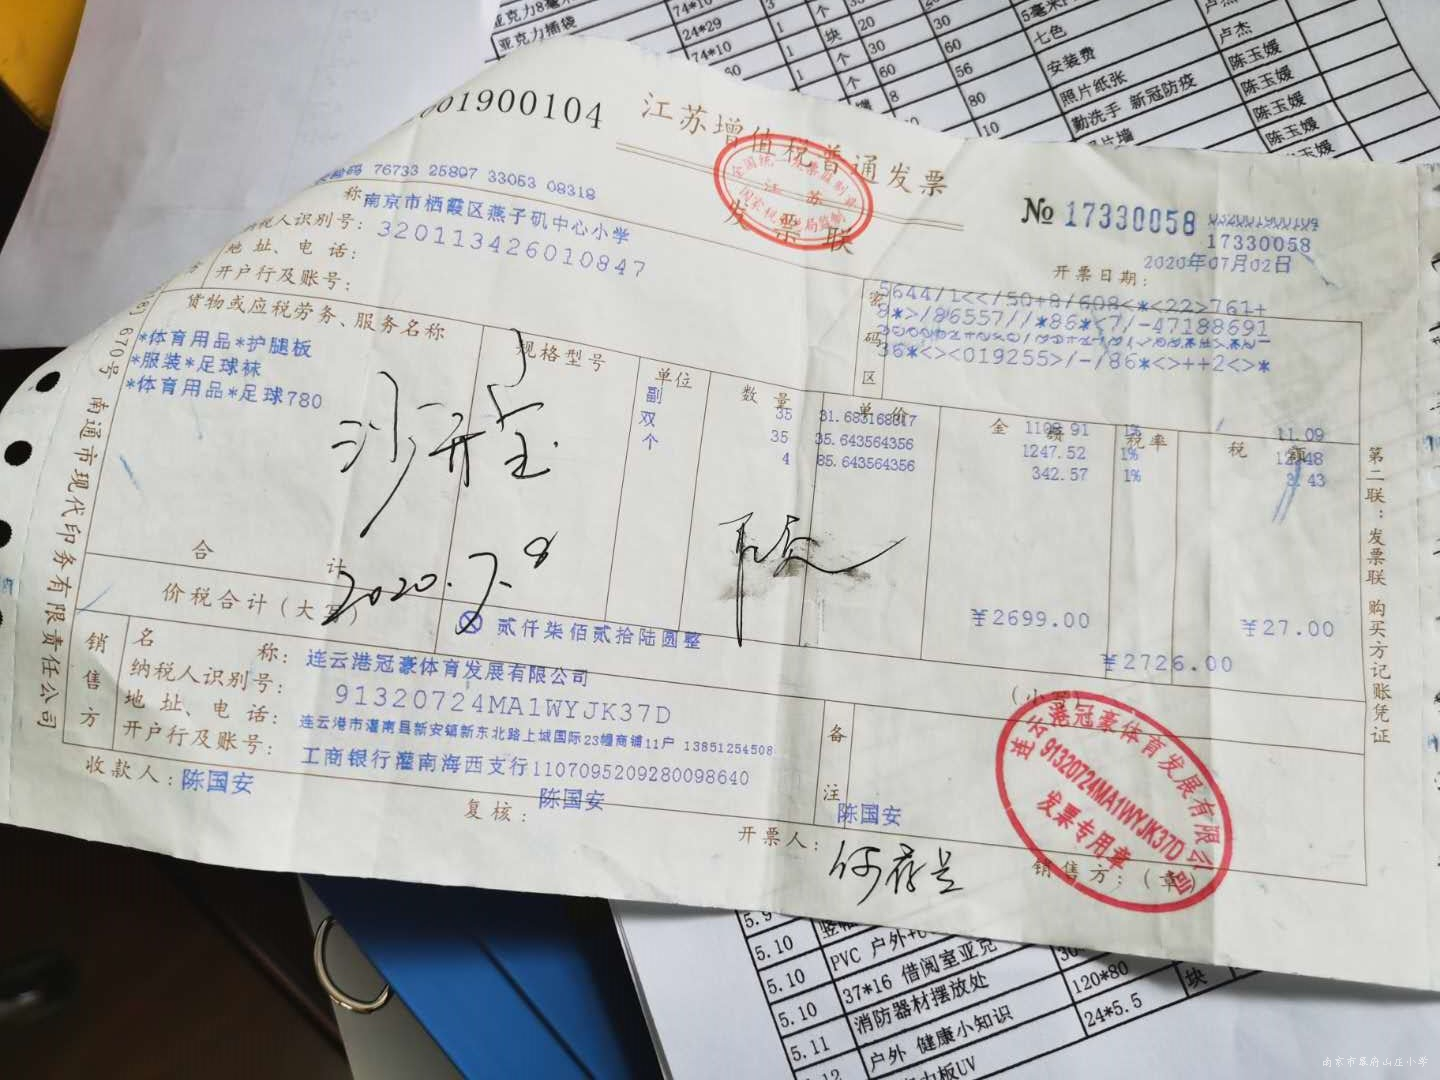 亚克力8毫米
亚克力插袋
24*29
74*10
1
个
块
个
个
20
30
30
60
60
56
8
80
10
七色
安装费
照片纸张
勤洗手 新冠防疫
卢杰
陈玉媛
陈玉媛
陈玉媛
陈玉媛
001900104
江苏增值税普通发票
发票联
全国统一发票监制章
江苏
国家税务总局监制
76733 25897 33053 08318
№ 17330058 032001900104
17330058
开票日期: 2020年07月02日
称 南京市栖霞区燕子矶中心小学
纳税人识别号: 320113426010847
地址、电话:
开户行及账号:
密码区
5644/1<</50+8/608<*<22>761+
8*>/86557//*86*<7/-47188691
36*<><019255>/-/86*<>++2<>*
货物或应税劳务、服务名称 规格型号 单位 数量 单价 金额 税率 税额
*体育用品*护腿板 副 35 31.683168317 1108.91 1% 11.09
*服装*足球袜 双 35 35.643564356 1247.52 1% 12.48
*体育用品*足球780 个 4 85.643564356 342.57 1% 3.43
2020.7.8
合计 ¥2699.00 ¥27.00
价税合计(大写) ⊗ 贰仟柒佰贰拾陆圆整 (小写) ¥2726.00
销售方
名称: 连云港冠豪体育发展有限公司
纳税人识别号: 91320724MA1WYJK37D
地址、电话: 连云港市灌南县新安镇新东北路上城国际23幢商铺11户 13851254508
开户行及账号: 工商银行灌南海西支行1107095209280098640
备注
收款人: 陈国安 复核: 陈国安 开票人: 陈国安 销售方:(章)
连云港冠豪体育发展有限公司
91320724MA1WYJK37D
发票专用章
第二联:发票联 购买方记账凭证
670号 南通市现代印务有限责任公司
5.9
5.10 PVC 户外
5.10 37*16 借阅室亚克
5.10 消防器材摆放处 120*80 块
5.11 户外 健康小知识 24*5.5
板UV
南京市幕府山庄小学